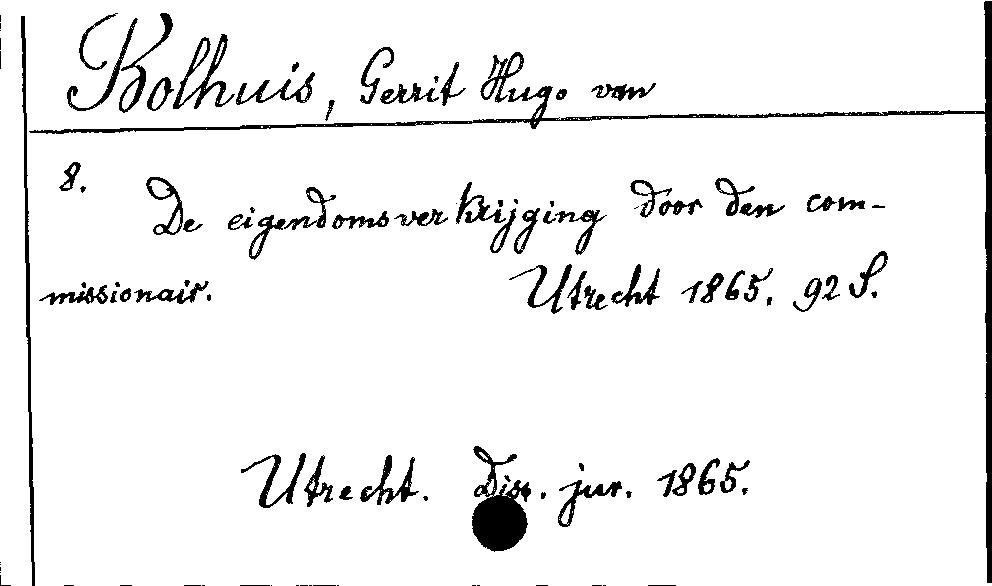 Bolhuis, Gerrit Hugo van
8.
De eigendomsverkrijging door den com-
missionair. Utrecht 1865. 92 S.
Utrecht. Diss. jur. 1865.